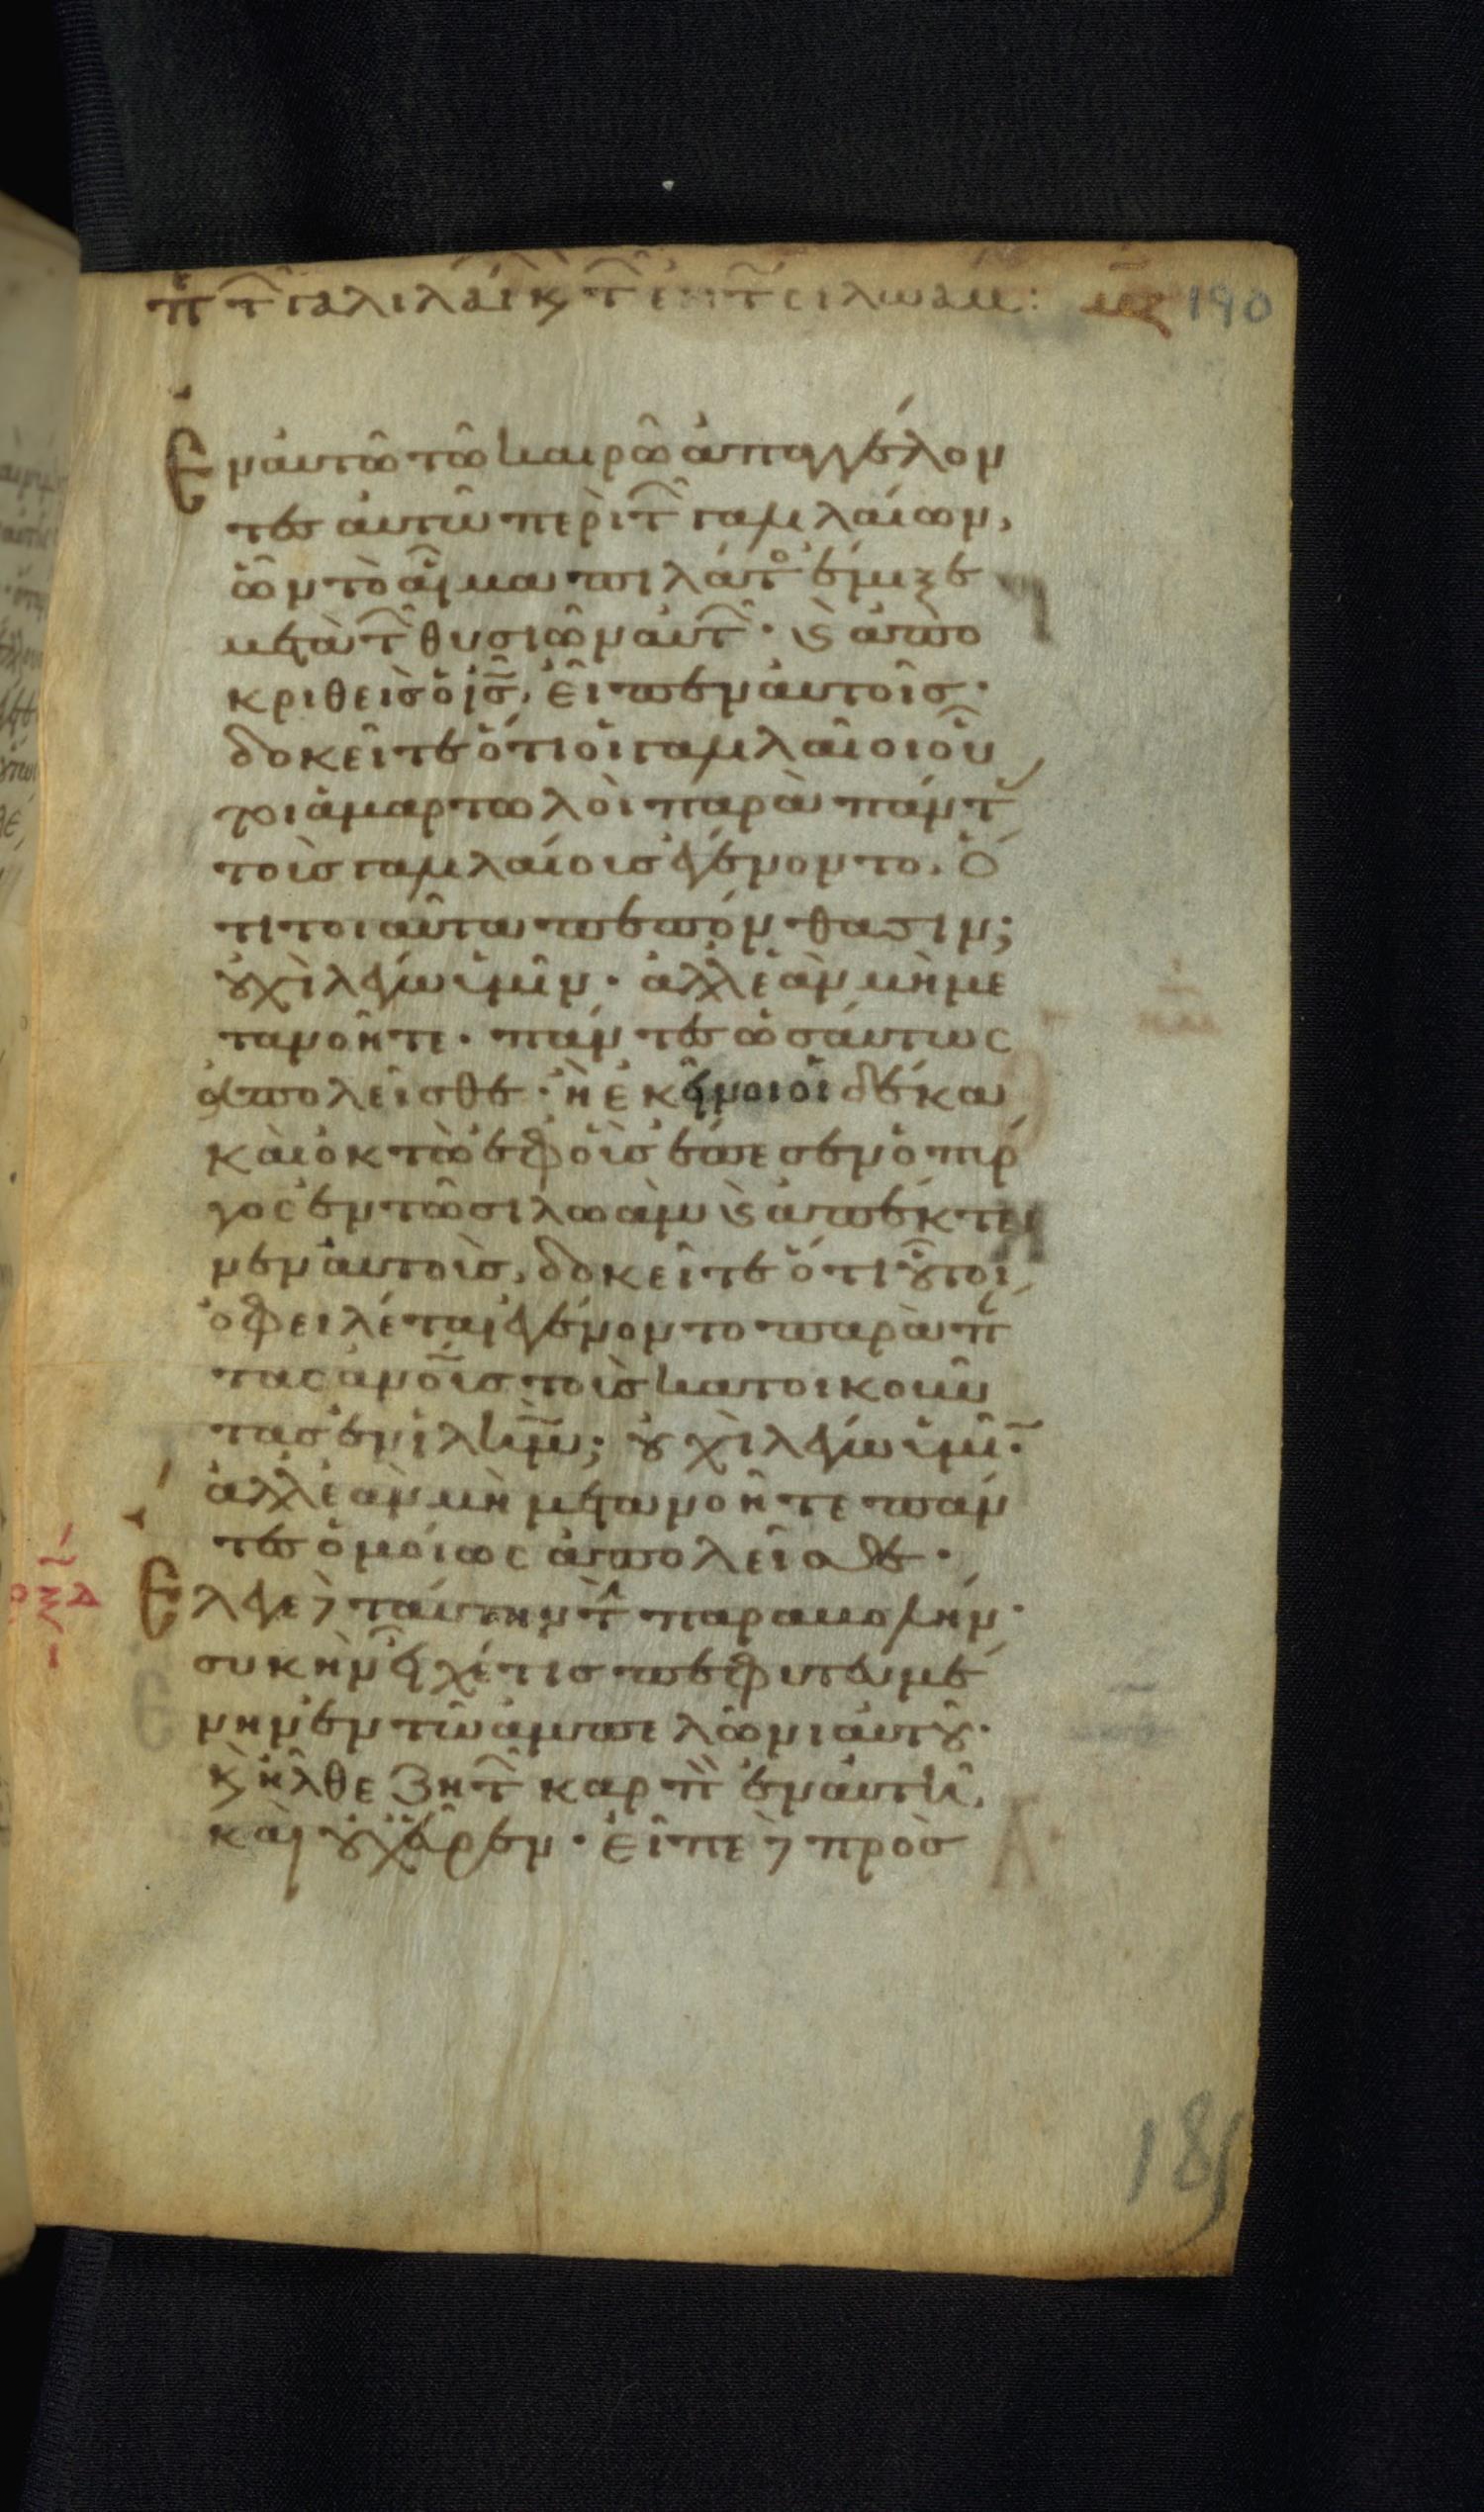 π τ γαλιλαί κ τ ἐν τ σιλωάμ: μζ 190
Ἐν αὐτῶ τῶ καιρῶ ἀπαγγέλον
τες αὐτῶ περὶ τ γαλιλαίων,
ὧν τὸ αἷμα πιλάτο ἔμιξε
μετὰ τ θυσιῶν αὐτ· ϗ ἀπο
κριθεὶς ὁ ις, εἶπεν αὐτοῖς·
δοκεῖτε ὅτι οἱ γαλιλαῖοι οὗ
τοι ἁμαρτωλοὶ παρὰ πάντ
τοὺς γαλιλαίοις ἐγένοντο, ὅ
τι τοιαῦτα πεπόνθασιν;
οὐχὶ λέγω ὑμῖν· ἀλλ' ἐὰν μὴ με
τανοῆτε· πάντες ὡσαύτως
ἀπολεῖσθε· ἢ ἐκεῖνοι οἱ δέκα
καὶ ὀκτὼ ἐφ οἷς ἔπεσεν ὁ πύρ
γος ἐν τῶ σιλωὰμ ϗ ἀπέκτει
νεν αὐτοὺς, δοκεῖτε ὅτι οὗτοι
ὀφειλέται ἐγένοντο παρὰ π
τας ἀνοις τοὺς κατοικοῦν
τας ἐν ιλημ; οὐχὶ λέγω ὑμῖ·
ἀλλ' ἐὰν μὴ μετανοῆτε πάν
τες ὁμοίως ἀπολεῖσθε·
Ἔλεγε δὲ ταύτην τ παραβολήν·
συκὴν εἶχέ τις πεφυτευμέ
νην ἐν τῶ ἀμπελῶνι αὐτοῦ·
ϗ ἦλθε ζητ καρπ ἐν αὐτῆ,
καὶ οὐχ εὗρεν· εἶπε δὲ πρὸς
185